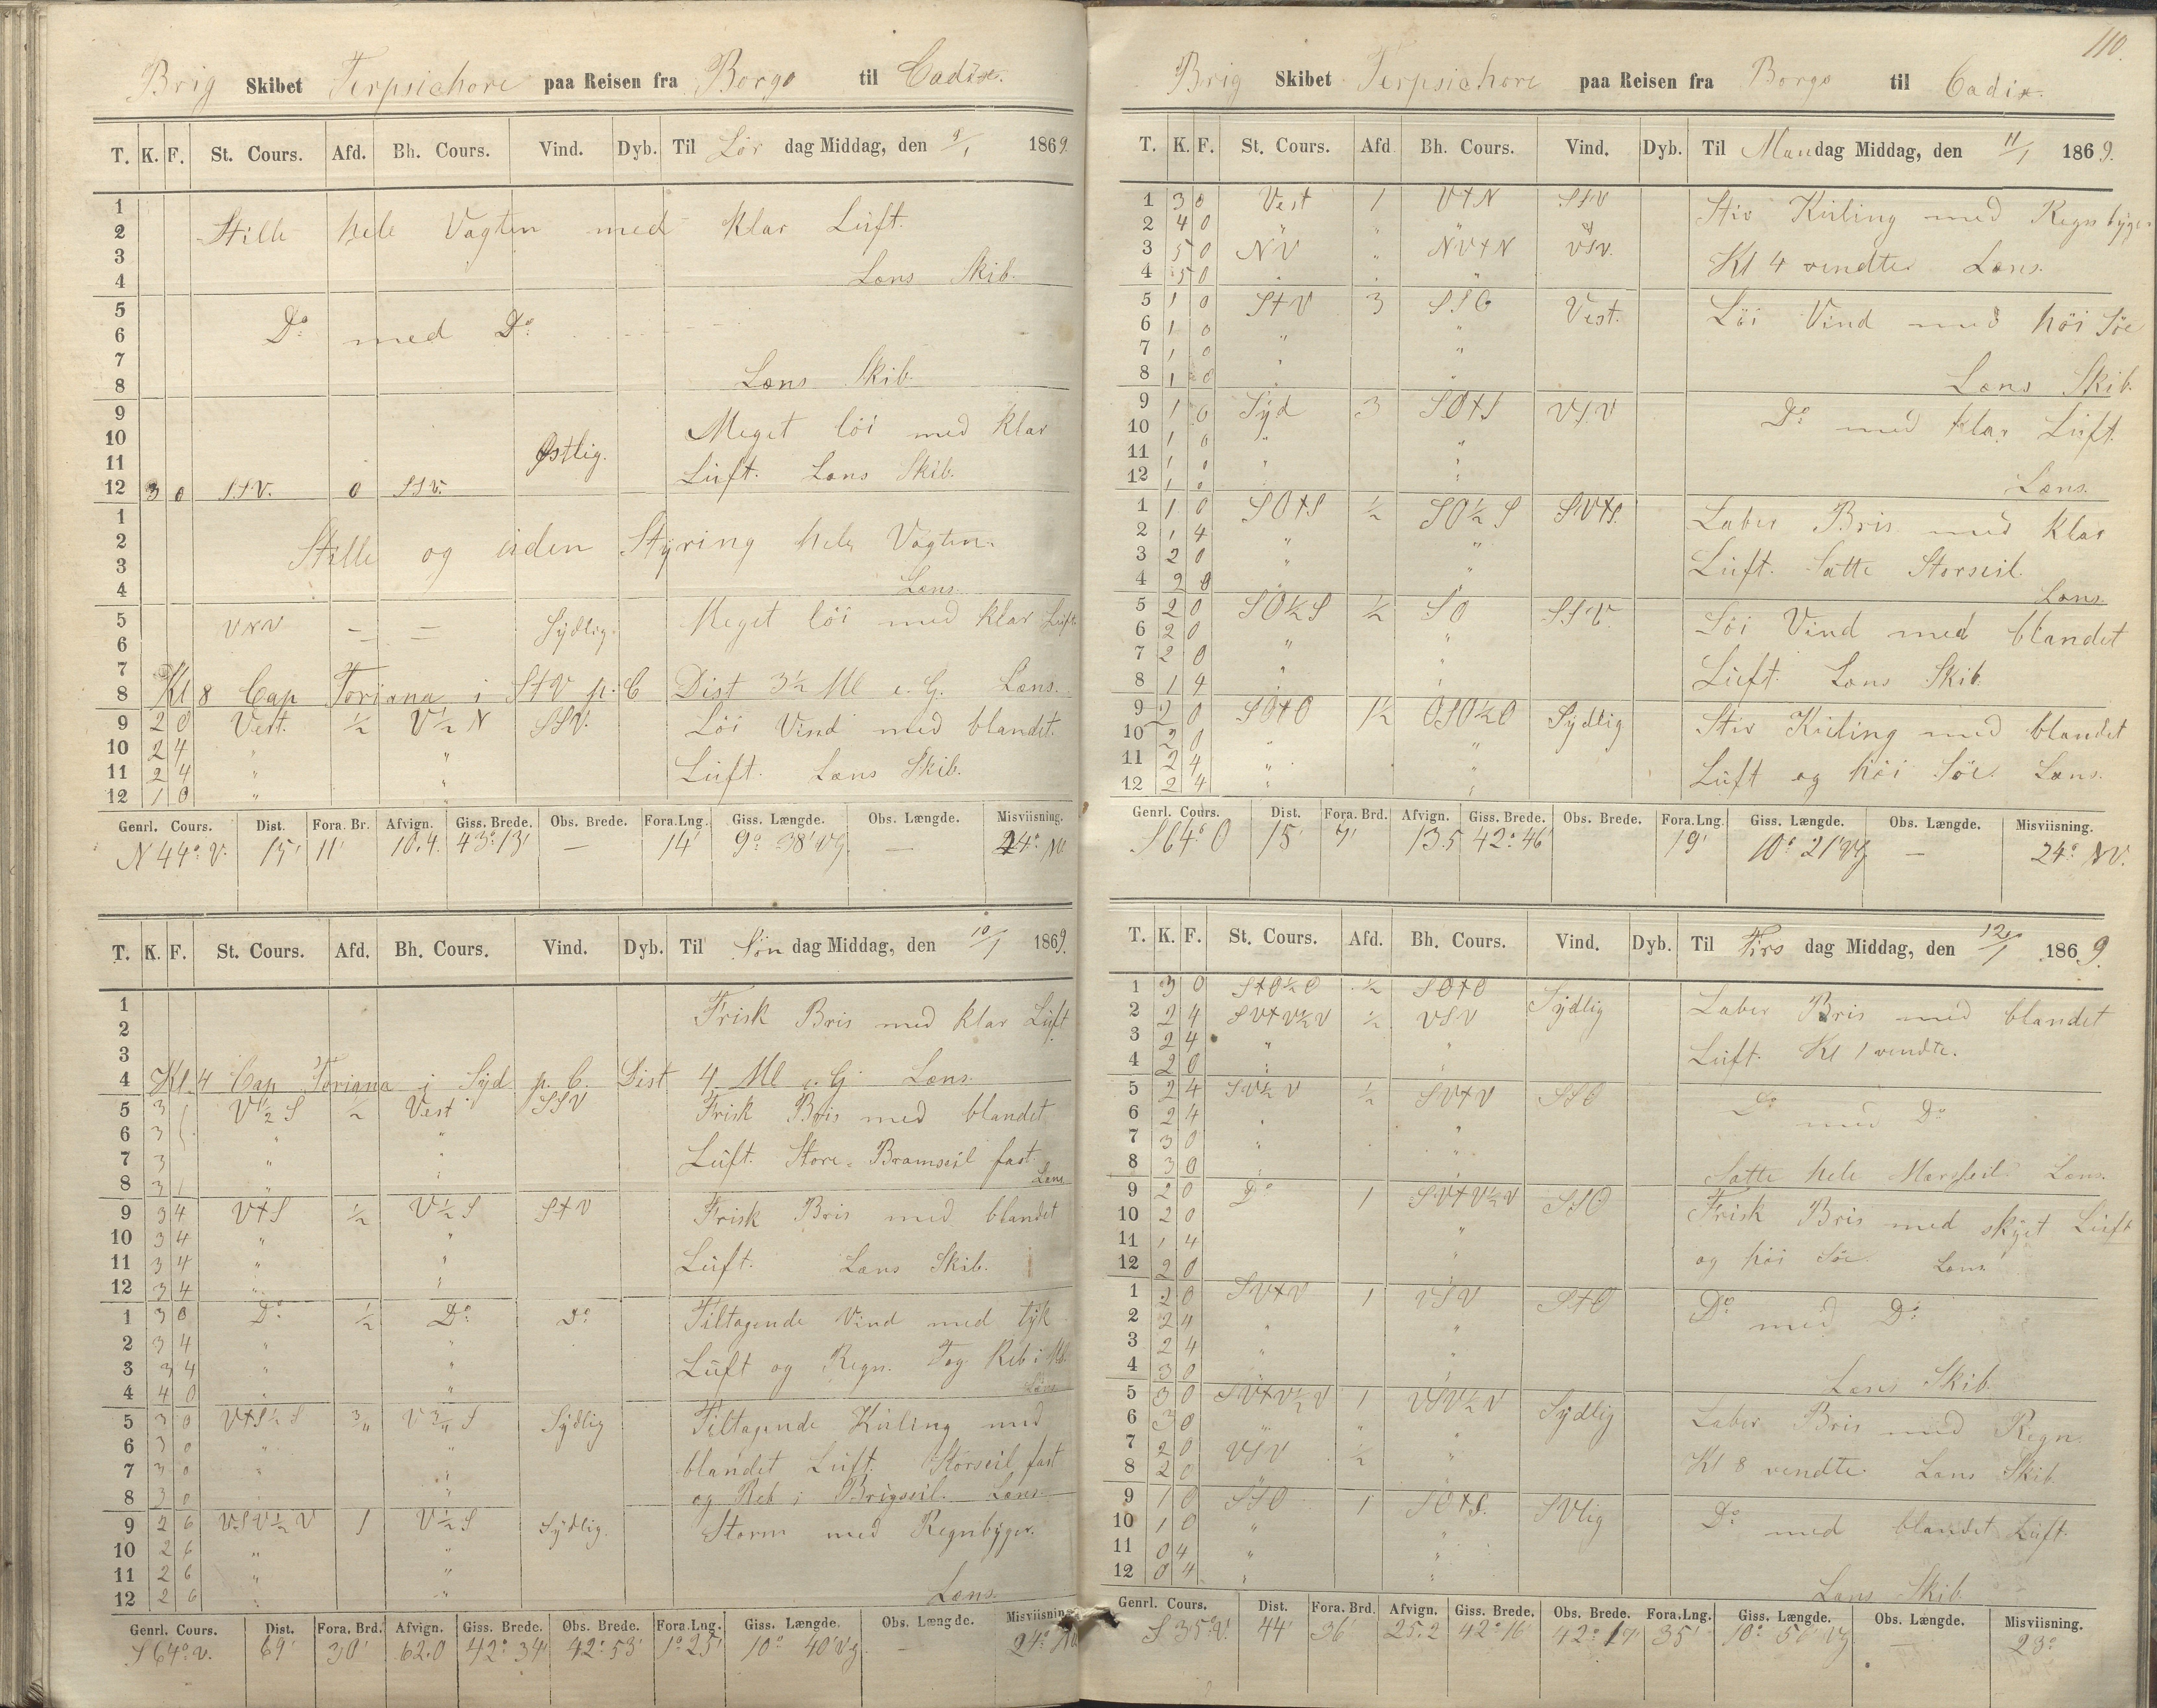 Brig Skibet Terpsichore paa Reisen fra Borgo til Cadix.
T. K. F. St. Cours. Afd. Bh. Cours. Vind. Dyb. Til Lør dag Middag, den 9/1 1869.
1
2 Stille hele Vagten med klar Luft.
3
4 Læns Skib.
5
6 Do med Do
7
8 Læns Skib.
9
10 Meget löi med klar
11 Østlig. Luft. Læns Skib.
12 3 0 SSV. 0 SSV.
1
2 Stille og uden Styring hele Vagten.
3
4 Læns.
5 VNV = = Sydlig. Meget löi med klar Luft
6
7
8 Kl 8 Cap Toriana i S+V p. C Dist 3½ Ml e. G. Læns.
9 2 0 Vest. ½ V½N SSV. Löi Vind med blandet.
10 2 4 " "
11 2 4 " " Luft. Læns Skib.
12 1 0 " "
Genrl. Cours. Dist. Fora. Br. Afvign. Giss. Brede. Obs. Brede. Fora.Lng. Giss. Længde. Obs. Længde. Misviisning.
N 44° V. 15' 11' 10.4 43° 13' — 14' 9° 38' VG — 24° NV
T. K. F. St. Cours. Afd. Bh. Cours. Vind. Dyb. Til Søn dag Middag, den 10/1 1869.
1 Frisk Bris med klar Luft
2
3
4 Kl. 4 Cap Toriana i Syd p. C. Dist 4 Ml e. G. Læns.
5 3 V½S ½ Vest SSV Frisk Bris med blandet
6 3 " "
7 3 " " Luft. Store-Bramseil fast.
8 3 " Læns
9 3 4 V+S ½ V½S S+V Frisk Bris med blandet
10 3 4 " "
11 3 4 " " Luft. Læns Skib.
12 3 4 " "
1 3 0 Do ½ Do Do Tiltagende Vind med tyk
2 3 4 " "
3 3 4 " " Luft og Regn. Tog Reb i
4 4 0 " " Læns
5 3 0 V+S½S V S Sydlig Tiltagende Kuling med
6 3 0 " "
7 3 0 " " blandet Luft. Storseil fast
8 3 0 " og Reb i Brigseil. Læns
9 2 6 VSV½V 1 V½S Sydlig. Storm med Regnbyger.
10 2 6 " "
11 2 6 " "
12 2 6 " " Læns.
Genrl. Cours. Dist. Fora. Brd. Afvign. Giss. Brede. Obs. Brede. Fora.Lng. Giss. Længde. Obs. Længde. Misviisning.
S 64° V. 69' 30' 62.0 42° 34' 42° 53' 1° 25' 10° 40' VG — 24° NV
110.
Brig Skibet Terpsichore paa Reisen fra Borgo til Cadix.
T. K. F. St. Cours. Afd Bh. Cours. Vind. Dyb. Til Mandag Middag, den 11/1 1869.
1 3 0 Vest 1 V+N SSV Stiv Kuling med Regnbyger
2 4 0 " " " "
3 5 0 NV " NV+N VSV. Kl 4 vendte. Læns.
4 5 0 " " "
5 1 0 S+V 3 SSO Vest. Löi Vind med höi Söe
6 1 0 " "
7 1 0 " "
8 1 0 " " Læns Skib.
9 1 0 Syd 3 SO+S VSV Do med klar Luft.
10 1 0 " "
11 1 0 " "
12 1 0 " " Læns.
1 1 0 SO+S ½ SO½S SV+S. Laber Bris med klar
2 1 4 " "
3 2 0 " " Luft. Satte Storseil.
4 2 0 " " Læns
5 2 0 SO½S ½ SO SSV. Löi Vind med blandet
6 2 0 " "
7 2 0 " " Luft. Læns Skib.
8 1 4 " "
9 2 0 SO+O 1½ OSO½O Sydlig Stiv Kuling med blandet
10 2 0 " "
11 2 4 " " Luft og höi Söe. Læns.
12 2 4 " "
Genrl. Cours. Dist. Fora. Brd. Afvign. Giss. Brede. Obs. Brede. Fora.Lng. Giss. Længde. Obs. Længde. Misviisning.
S 64° O 15' 7' 13.5 42° 46' 19' 10° 21' VG — 24° NV.
T. K. F. St. Cours. Afd. Bh. Cours. Vind. Dyb. Til Tirs dag Middag, den 12/1 1869.
1 3 0 S+O½O ½ SO+O Sydlig Laber Bris med blandet
2 2 4 SV+V½V ½ VSV
3 2 4 " " Luft. Kl 1 vendte.
4 2 0 " "
5 2 4 SV½V ½ SV+V SSO Do med Do
6 2 4 " "
7 3 0 " "
8 3 0 " " Satte hele Mersseil. Læns.
9 2 0 Do 1 SV+V½V SSO Frisk Bris med skyet Luft
10 2 0 "
11 1 4 " og höi Söe. Læns
12 2 0 "
1 2 0 SV+V 1 VSV S+O Do med Do
2 2 4 " "
3 2 4 " "
4 3 0 " Læns Skib.
5 3 0 SV+V½V 1 VSV½V Sydlig Laber Bris med Regn.
6 3 0 " " "
7 2 0 VSV ½ " Kl 8 vendte. Læns Skib.
8 2 0 " "
9 1 0 SSO 1 SO+S. SVlig Do med blandet Luft.
10 1 0 " "
11 0 4 " "
12 0 4 " " Læns Skib.
Genrl. Cours. Dist. Fora. Brd. Afvign. Giss. Brede. Obs. Brede. Fora.Lng. Giss. Længde. Obs. Længde. Misviisning.
S 35° V. 44' 36' 25.2 42° 16' 42° 17' 35' 10° 56' VG — 23°